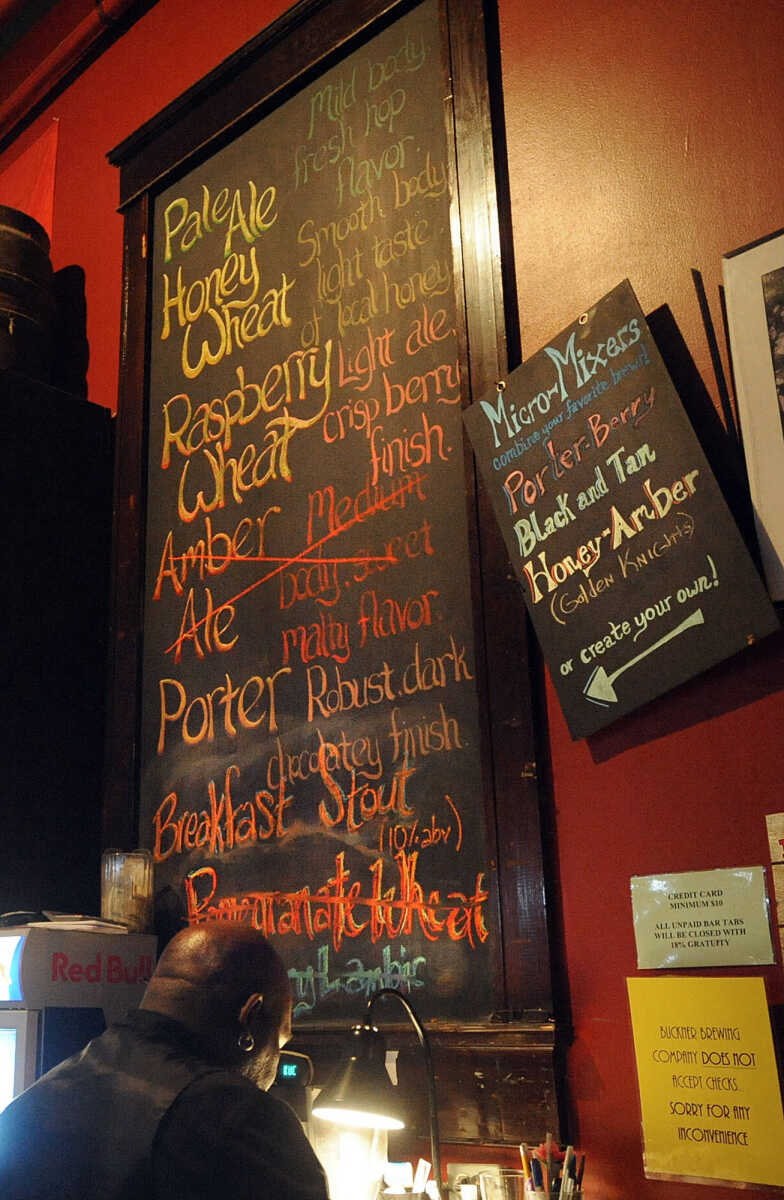 Mild body,
fresh hop
flavor.
Pale Ale
Smooth body,
light taste
of local honey
Honey
Wheat
Light ale,
crisp berry
finish.
Raspberry
Wheat
Amber Medium
body, sweet
Ale
malty flavor.
Porter Robust, dark
chocolatey finish.
Breakfast Stout
(10% abv)
Pomegranate Wheat
Lambic
Micro-Mixers
combine your favorite brews!
Porter-Berry
Black and Tan
Honey-Amber
(Golden Knights)
or create your own!
CREDIT CARD
MINIMUM $10
ALL UNPAID BAR TABS
WILL BE CLOSED WITH
18% GRATUITY
BUCKNER BREWING
COMPANY DOES NOT
ACCEPT CHECKS...
SORRY FOR ANY
INCONVENIENCE
Red Bull